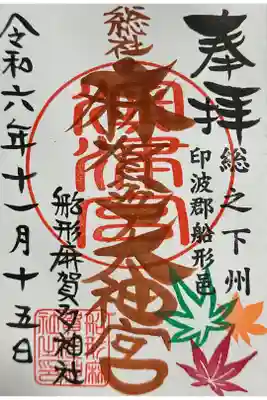 奉拝
総之下州
印波郡船形邑
総社
麻賀多大神宮
船形麻賀多神社
令和六年十一月十五日